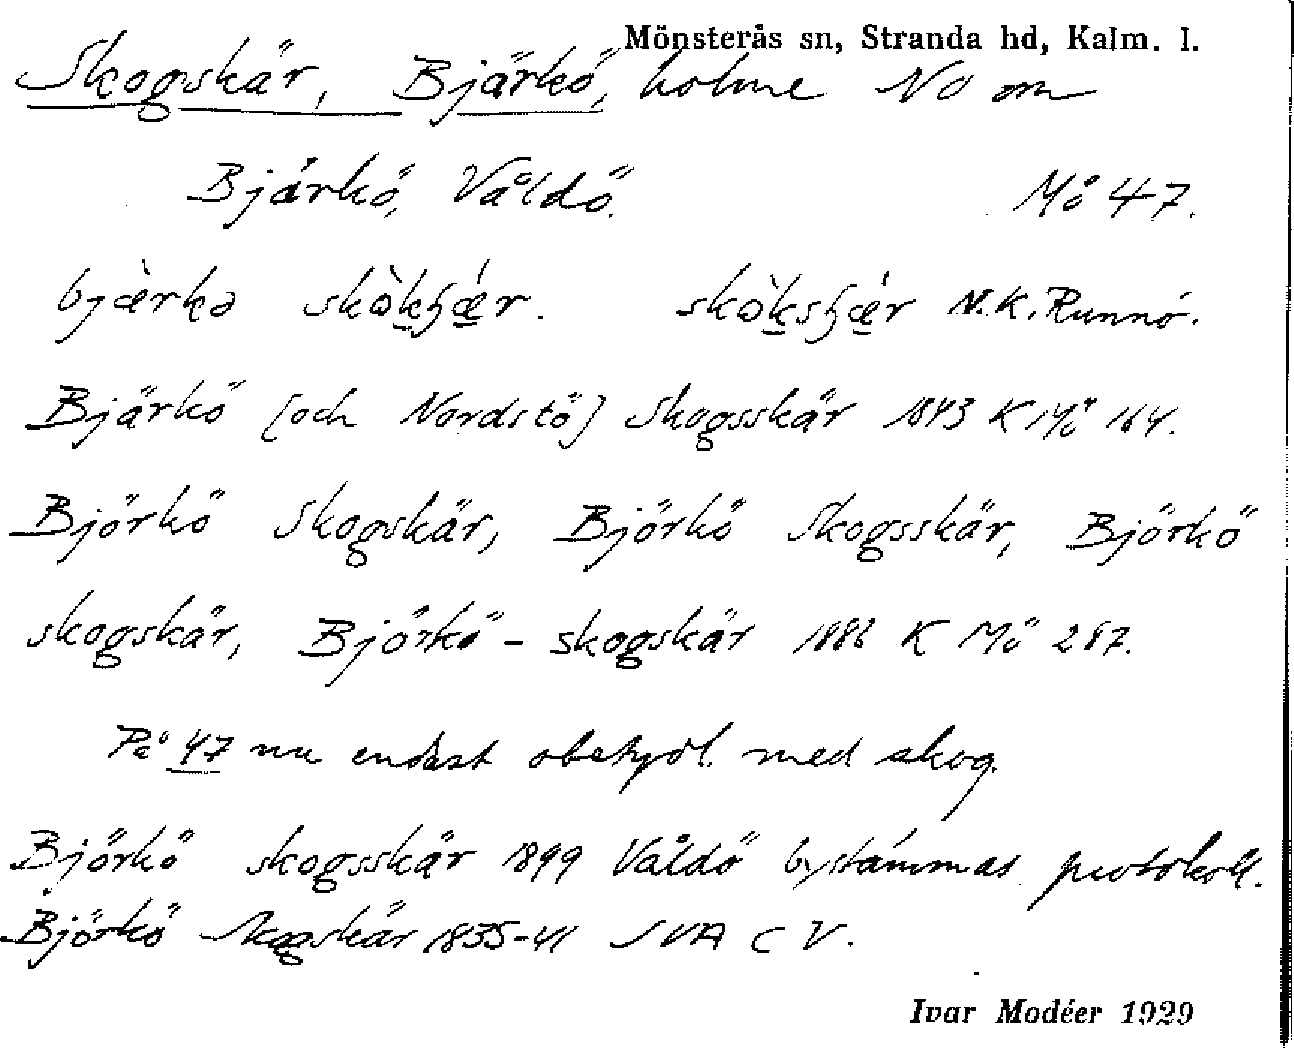 Mönsterås sn, Stranda hd, Kalm. l.
Skogskär, Bjärkö, holme NO om
Bjärkö, Våldö. Mö 47.
bjærkə skòkʃǽr. skòksʃǽr N.K. Runnö.
Bjärkö [och Nordstö] Skogsskär 1843 K Mö 164.
Björkö Skogskär, Björkö Skogsskär, Björkö
skogskär, Björkö - skogskär 1886 K Mö 287.
På 47 nu endast obetydl. med skog.
Björkö skogsskär 1899 Våldö bystämmas protokoll.
Björkö Skogskär 1835-41 SVA C V.
Ivar Modéer 1929